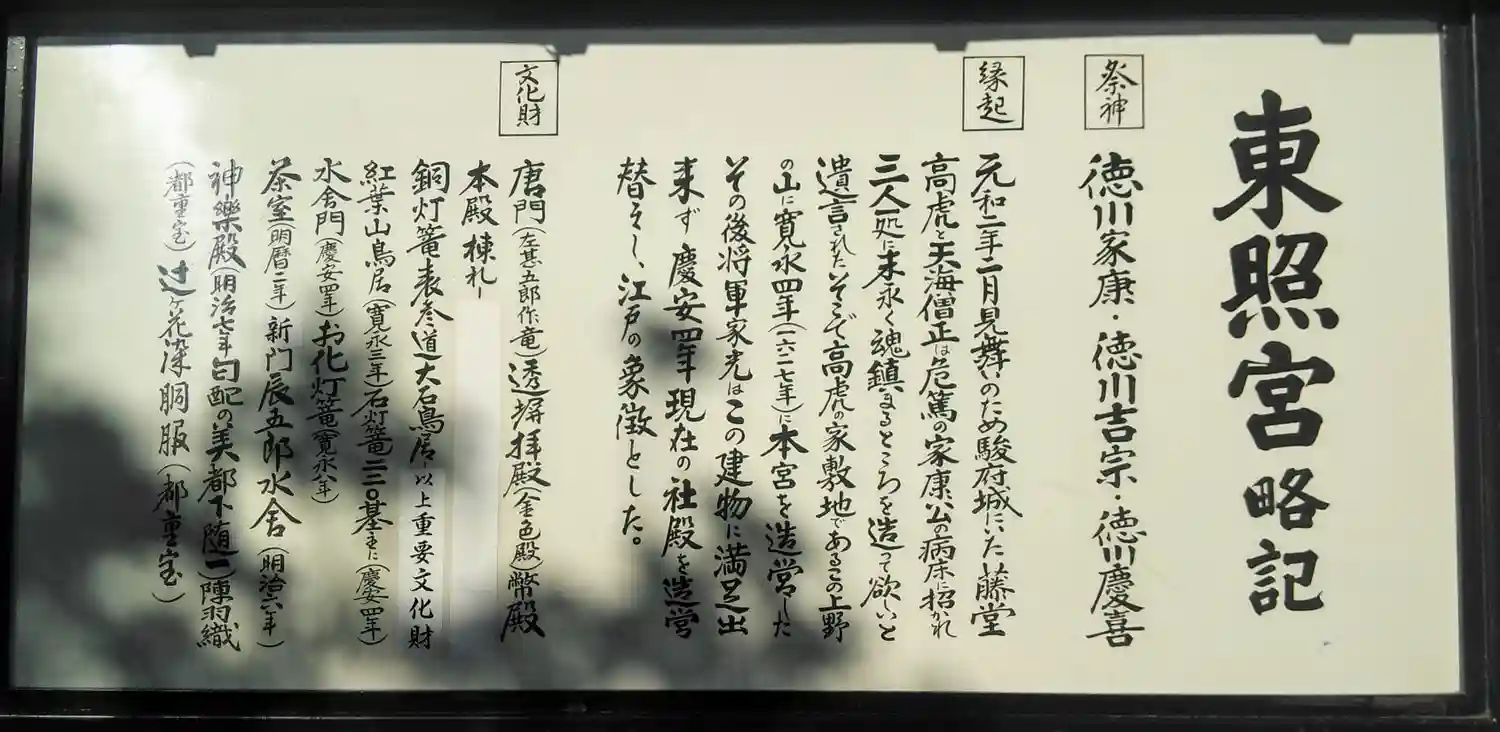 東照宮略記
祭神
徳川家康・徳川吉宗・徳川慶喜
縁起
元和二年二月見舞いのため駿府城にいた藤堂
高虎と天海僧正は危篤の家康公の病床に招かれ
三人一処に末永く魂鎮まるところを造って欲しいと
遺言されたそこで高虎の家敷地であるこの上野
の山に寛永四年(一六二七年)に本宮を造営した
その後将軍家光はこの建物に満足出
来ず慶安四年現在の社殿を造営
替えし、江戸の象徴とした。
文化財
唐門(左甚五郎作竜)透塀拝殿(金色殿)幣殿
本殿棟札
銅灯篭表参道大石鳥居以上重要文化財
紅葉山鳥居(寛永三年)石灯篭二二〇基主に(慶安四年)
水舎門(慶安四年)お化灯篭(寛永八年)
茶室(明暦二年)新門辰五郎水舎(明治六年)
神樂殿(明治七年勾配の美都下随一)陣羽織
(都重宝)辻ヶ花染胴服(都重宝)